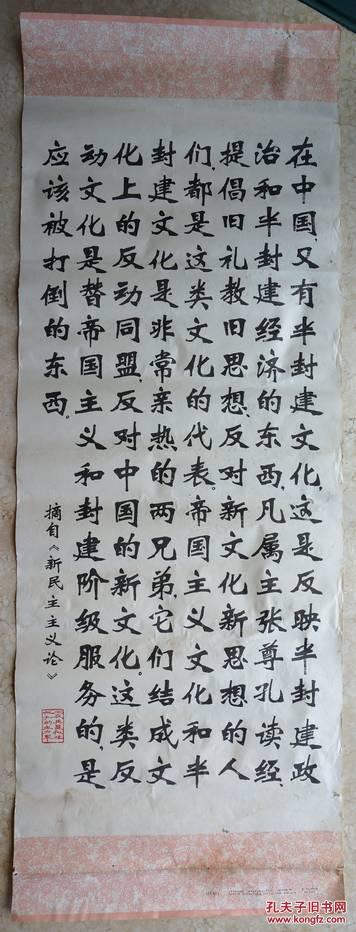 在中国，又有半封建文化，这是反映半封建政
治和半封建经济的东西，凡属主张尊孔读经，
提倡旧礼教旧思想，反对新文化新思想的人
们，都是这类文化的代表。帝国主义文化和半
封建文化是非常亲热的两兄弟，它们结成文
化上的反动同盟，反对中国的新文化。这类反
动文化是替帝国主义和封建阶级服务的，是
应该被打倒的东西。
摘自《新民主主义论》
孔夫子旧书网